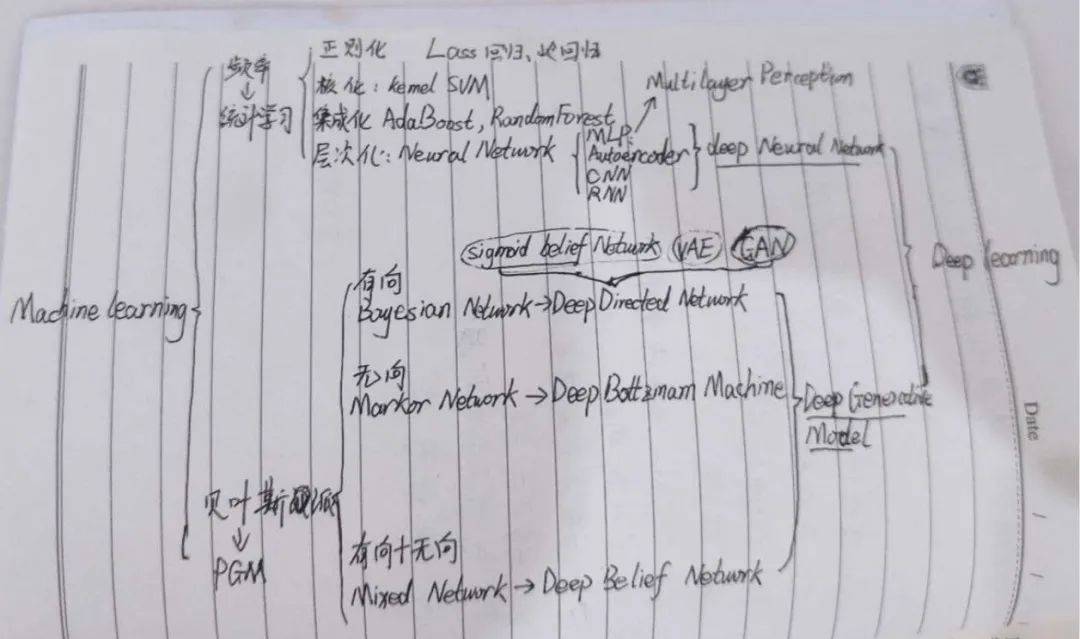 频率
↓
统计学习
正则化 Lass回归、岭回归
核化: kernel SVM
集成化 AdaBoost, RandomForest
层次化: Neural Network
Multilayer Perception
MLP:
Autoencoder
CNN
RNN
deep Neural Network
sigmoid belief Network VAE GAN
Deep learning
Machine learning
有向
Bayesian Network→Deep Directed Network
无向
Markor Network→Deep Boltzmam Machine
Deep Generative
Model
Date
贝叶斯
↓
PGM
有向+无向
Mixed Network→Deep Belief Network